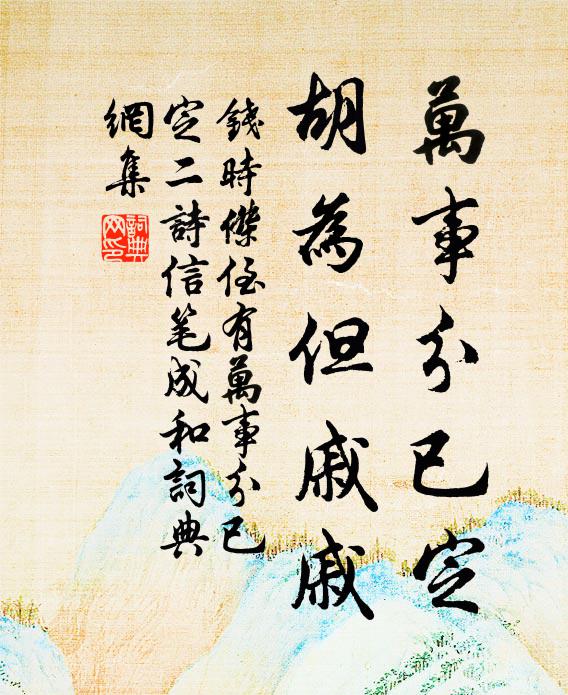 萬事分已定
胡為但戚戚
錢時傑侄有萬事分已
定二詩信笔成和詞典
網集
詞典網印